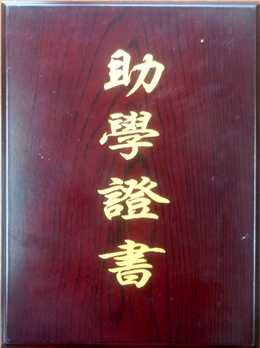 助學證書